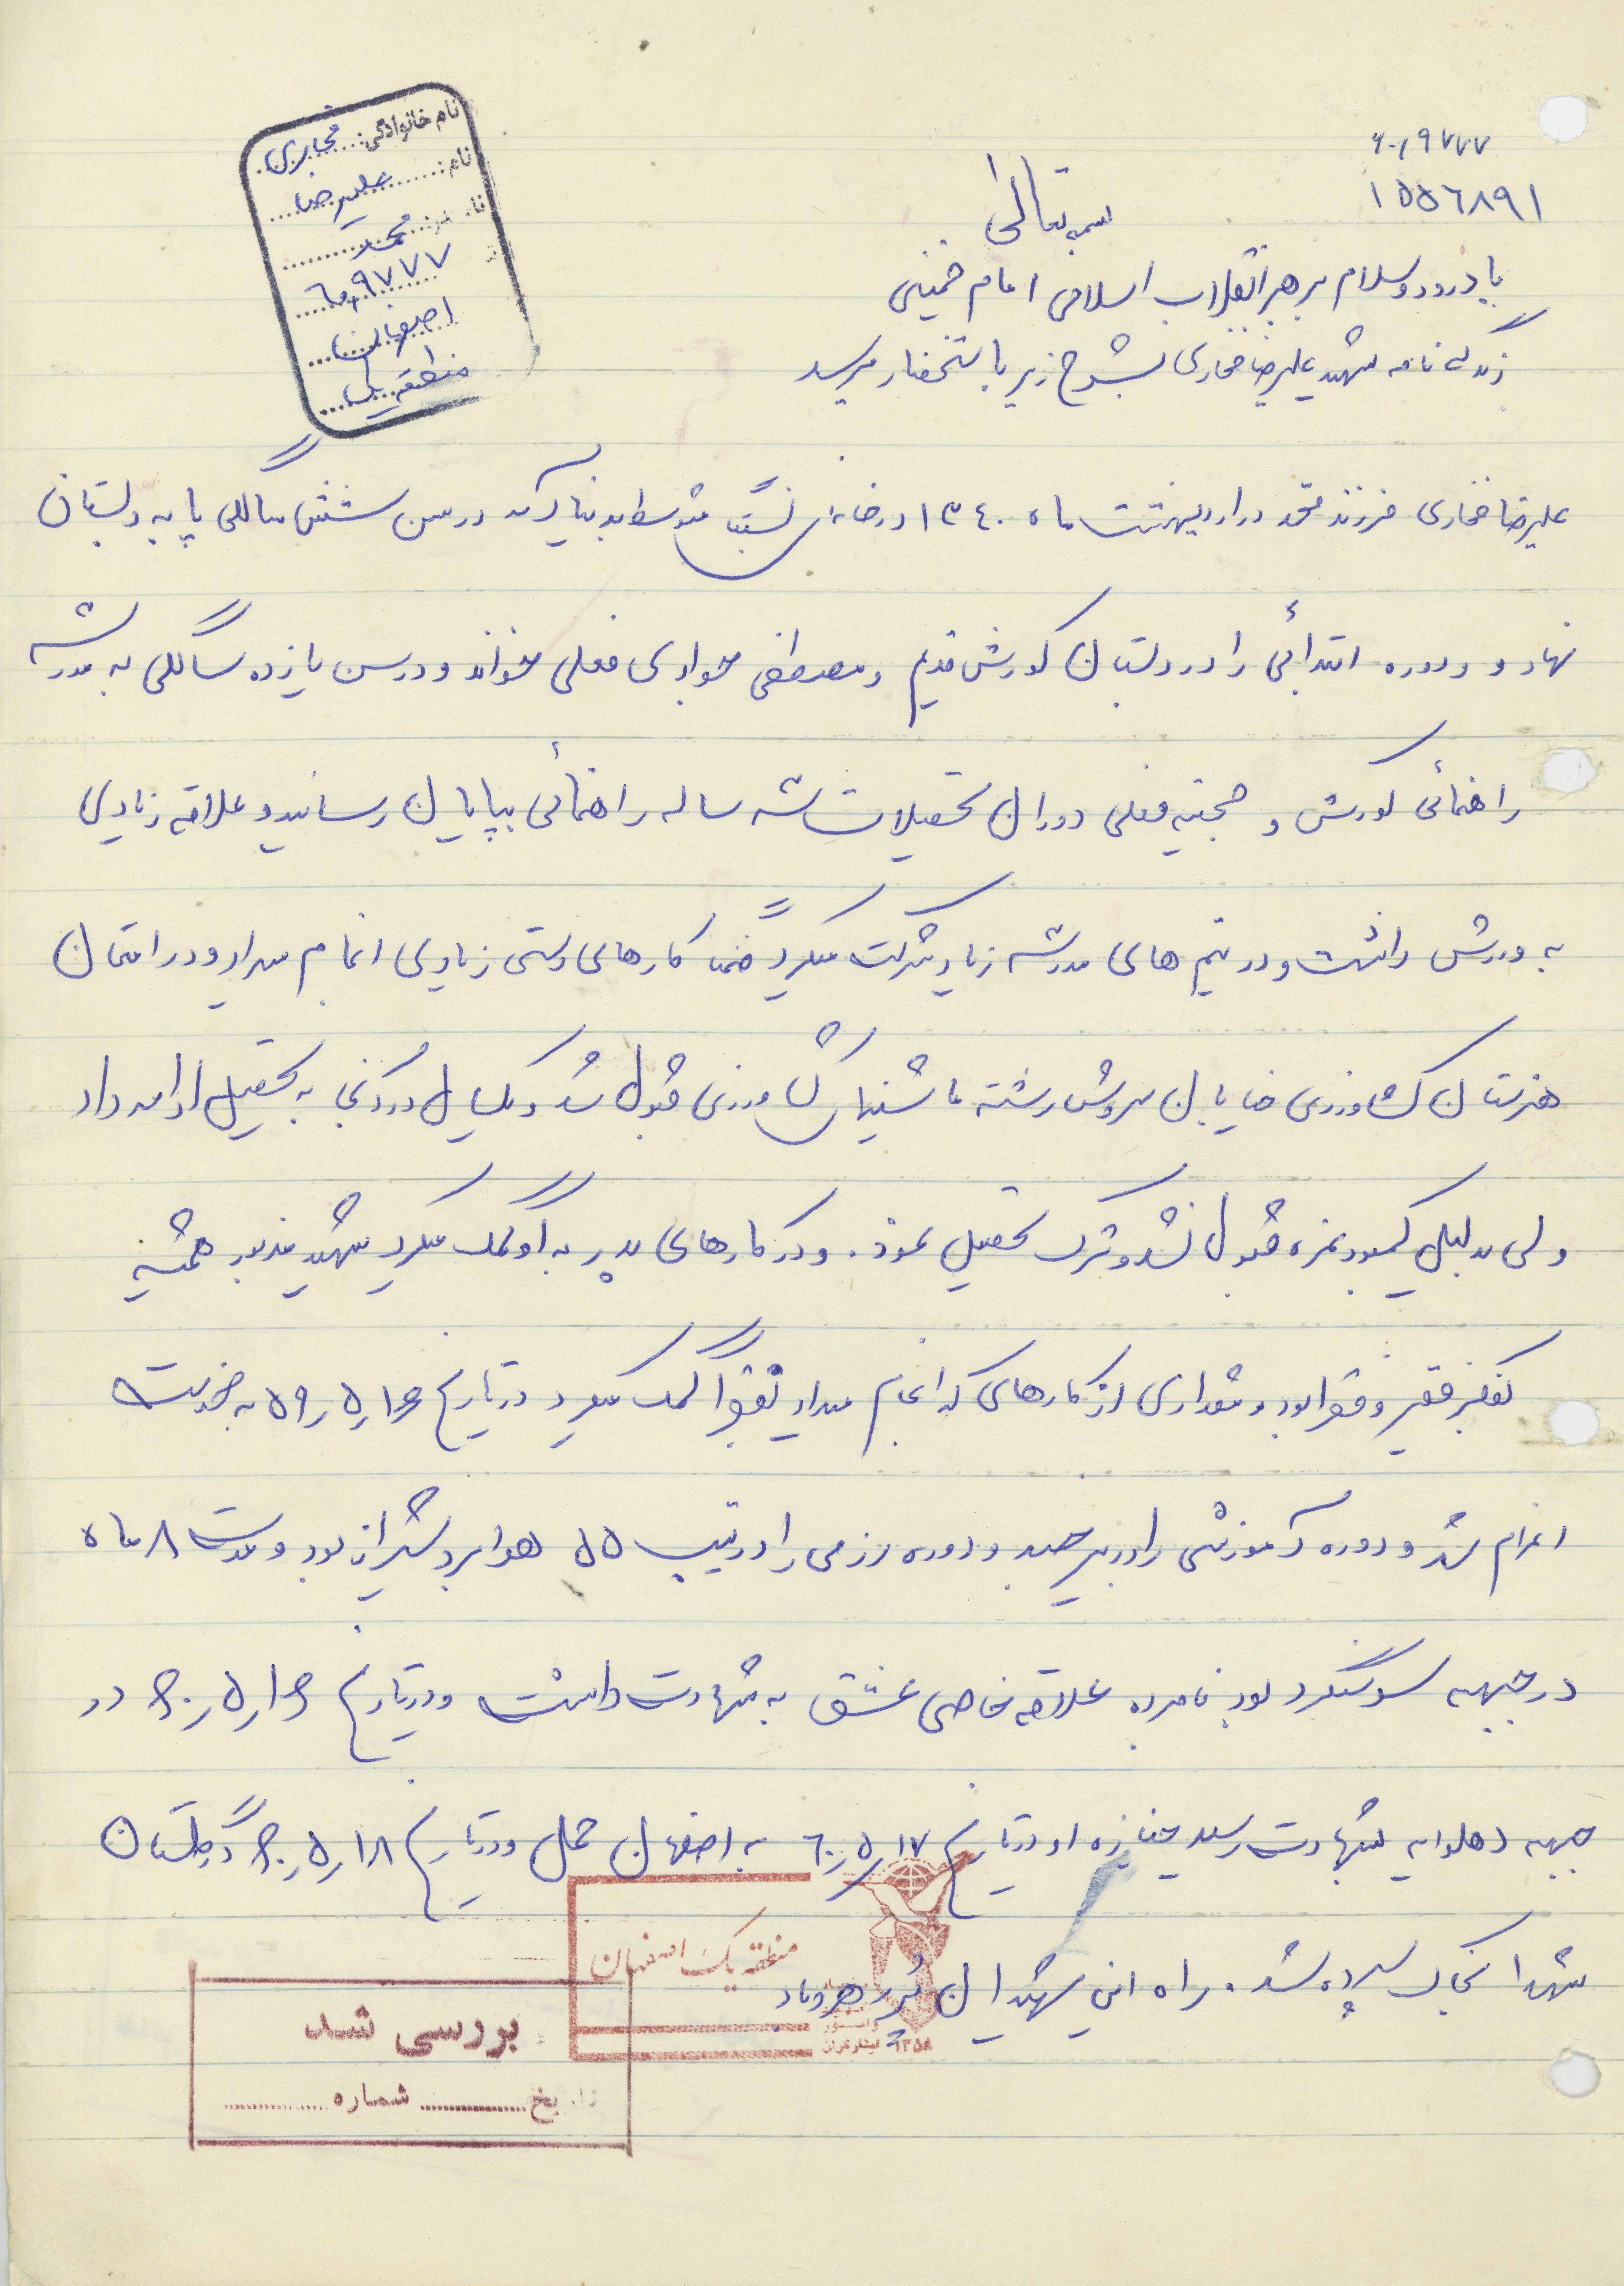 ۶۰۱۹۷۷۷
۱۵۵۶۸۹۱
بسمه تعالی
نام خانوادگی: فخاری
نام: علیرضا
محمد
۶۰۱۹۷۷۷
اصفهان
منطقه یک
با درود و سلام بر رهبر انقلاب اسلامی امام خمینی
زندگی نامه شهید علیرضا فخاری بشرح زیر باستحضار میرسد
علیرضا فخاری فرزند محمد در اردیبهشت ماه ۱۳۴۰ در خانه ای نسبتاً متوسط بدنیا آمد در سن شش سالگی پا به دبستان
نهاد و دوره ابتدائی را در دبستان کورش قدیم و مصطفی جوادی فعلی خواند و در سن یازده سالگی به مدرسه
راهنمائی کورش و حجتیه فعلی دوران تحصیلات سه ساله راهنمائی بپایان رسانید و علاقه زیادی
به ورزش داشت و در تیم های مدرسه زیاد شرکت میکرد ضمناً کارهای دستی زیادی انجام میداد و در امتحان
هنرستان کشاورزی خیابان سروش رشته ماشینهای کشاورزی قبول شد و یکسال در آنجا به تحصیل ادامه داد
ولی بدلیل کمبود نمره قبول نشد و ترک تحصیل نمود. و در کارهای پدر به او کمک میکرد شهید مزبور همیشه
بفکر فقیر و فقرا بود و مقداری از کارهای که انجام میداد بفقرا کمک میکرد در تاریخ ۱۶ر۵ر۵۹ به خدمت
اعزام شد و دوره آموزشی را در بیرجند و دوره رزمی را در تیپ ۵۵ هوابرد شیراز بود و مدت ۸ ماه
در جبهه سوسنگرد بود نامبرده علاقه خاصی عشق به شهادت داشت و در تاریخ ۱۶ر۵ر۶۰ در
جبهه دهلاویه بشهادت رسید جنازه او در تاریخ ۱۷ر۵ر۶۰ به اصفهان حمل و در تاریخ ۱۸ر۵ر۶۰ گلستان
شهدا بخاک سپرده شد. راه این شهیدان پُر رهرو باد.
منطقه یک اصفهان
۱۳۵۸ ایثارگران
بررسی شد
تاریخ شماره